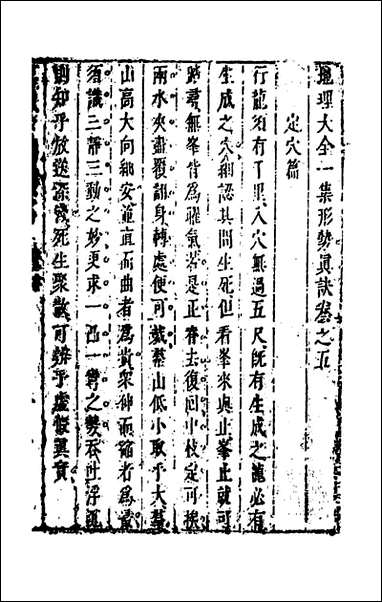 地理大全一集形勢真訣卷之五
定穴篇
行龍須有千里入穴無過五尺既有生成之龍必有
生成之穴細認其間生死但看峯來與止峯止就可
踏尋無峯皆為曜氣若是正脊去復回中枝定可挨
兩水夾盡覆翻身轉處便可裁蔡山低小取乎大蔡
山高大向細安葬直而曲者為貴眾伸而縮者為最
須識三靜三動之妙更求一凸一彎之勢吞吐浮沉
則知乎放送深淺死生聚散可辨乎虛假真實